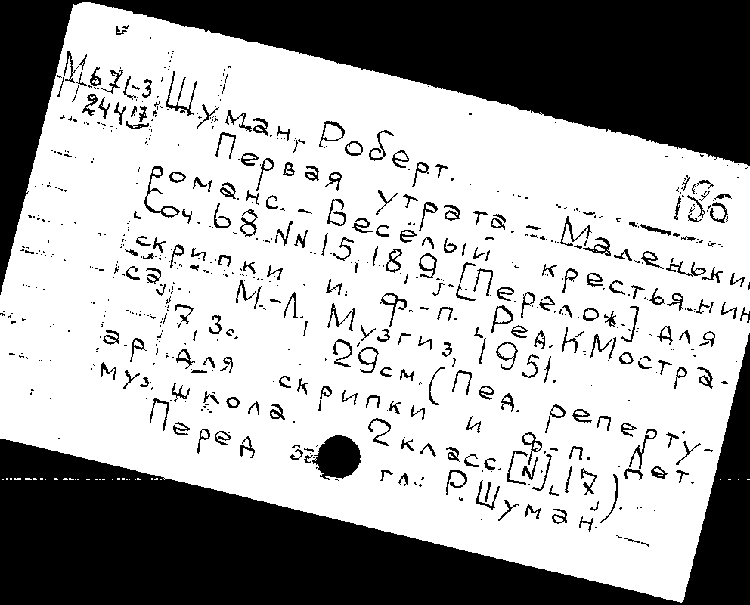 М671-3
24417
186
Шуман, Роберт.
Первая утрата. - Маленький
романс. - Весёлый крестьянин
Соч. 68 NN 15, 18, 9. [Перелож.] для
скрипки и ф.-п. Ред. К. Мостра-
са. М.-Л., Музгиз, 1951.
7, 3 с. 29 см. (Пед. реперту-
ар для скрипки и ф.-п. Дет.
муз. школа. 2 класс. [N] 17).
Перед загл.: Р. Шуман